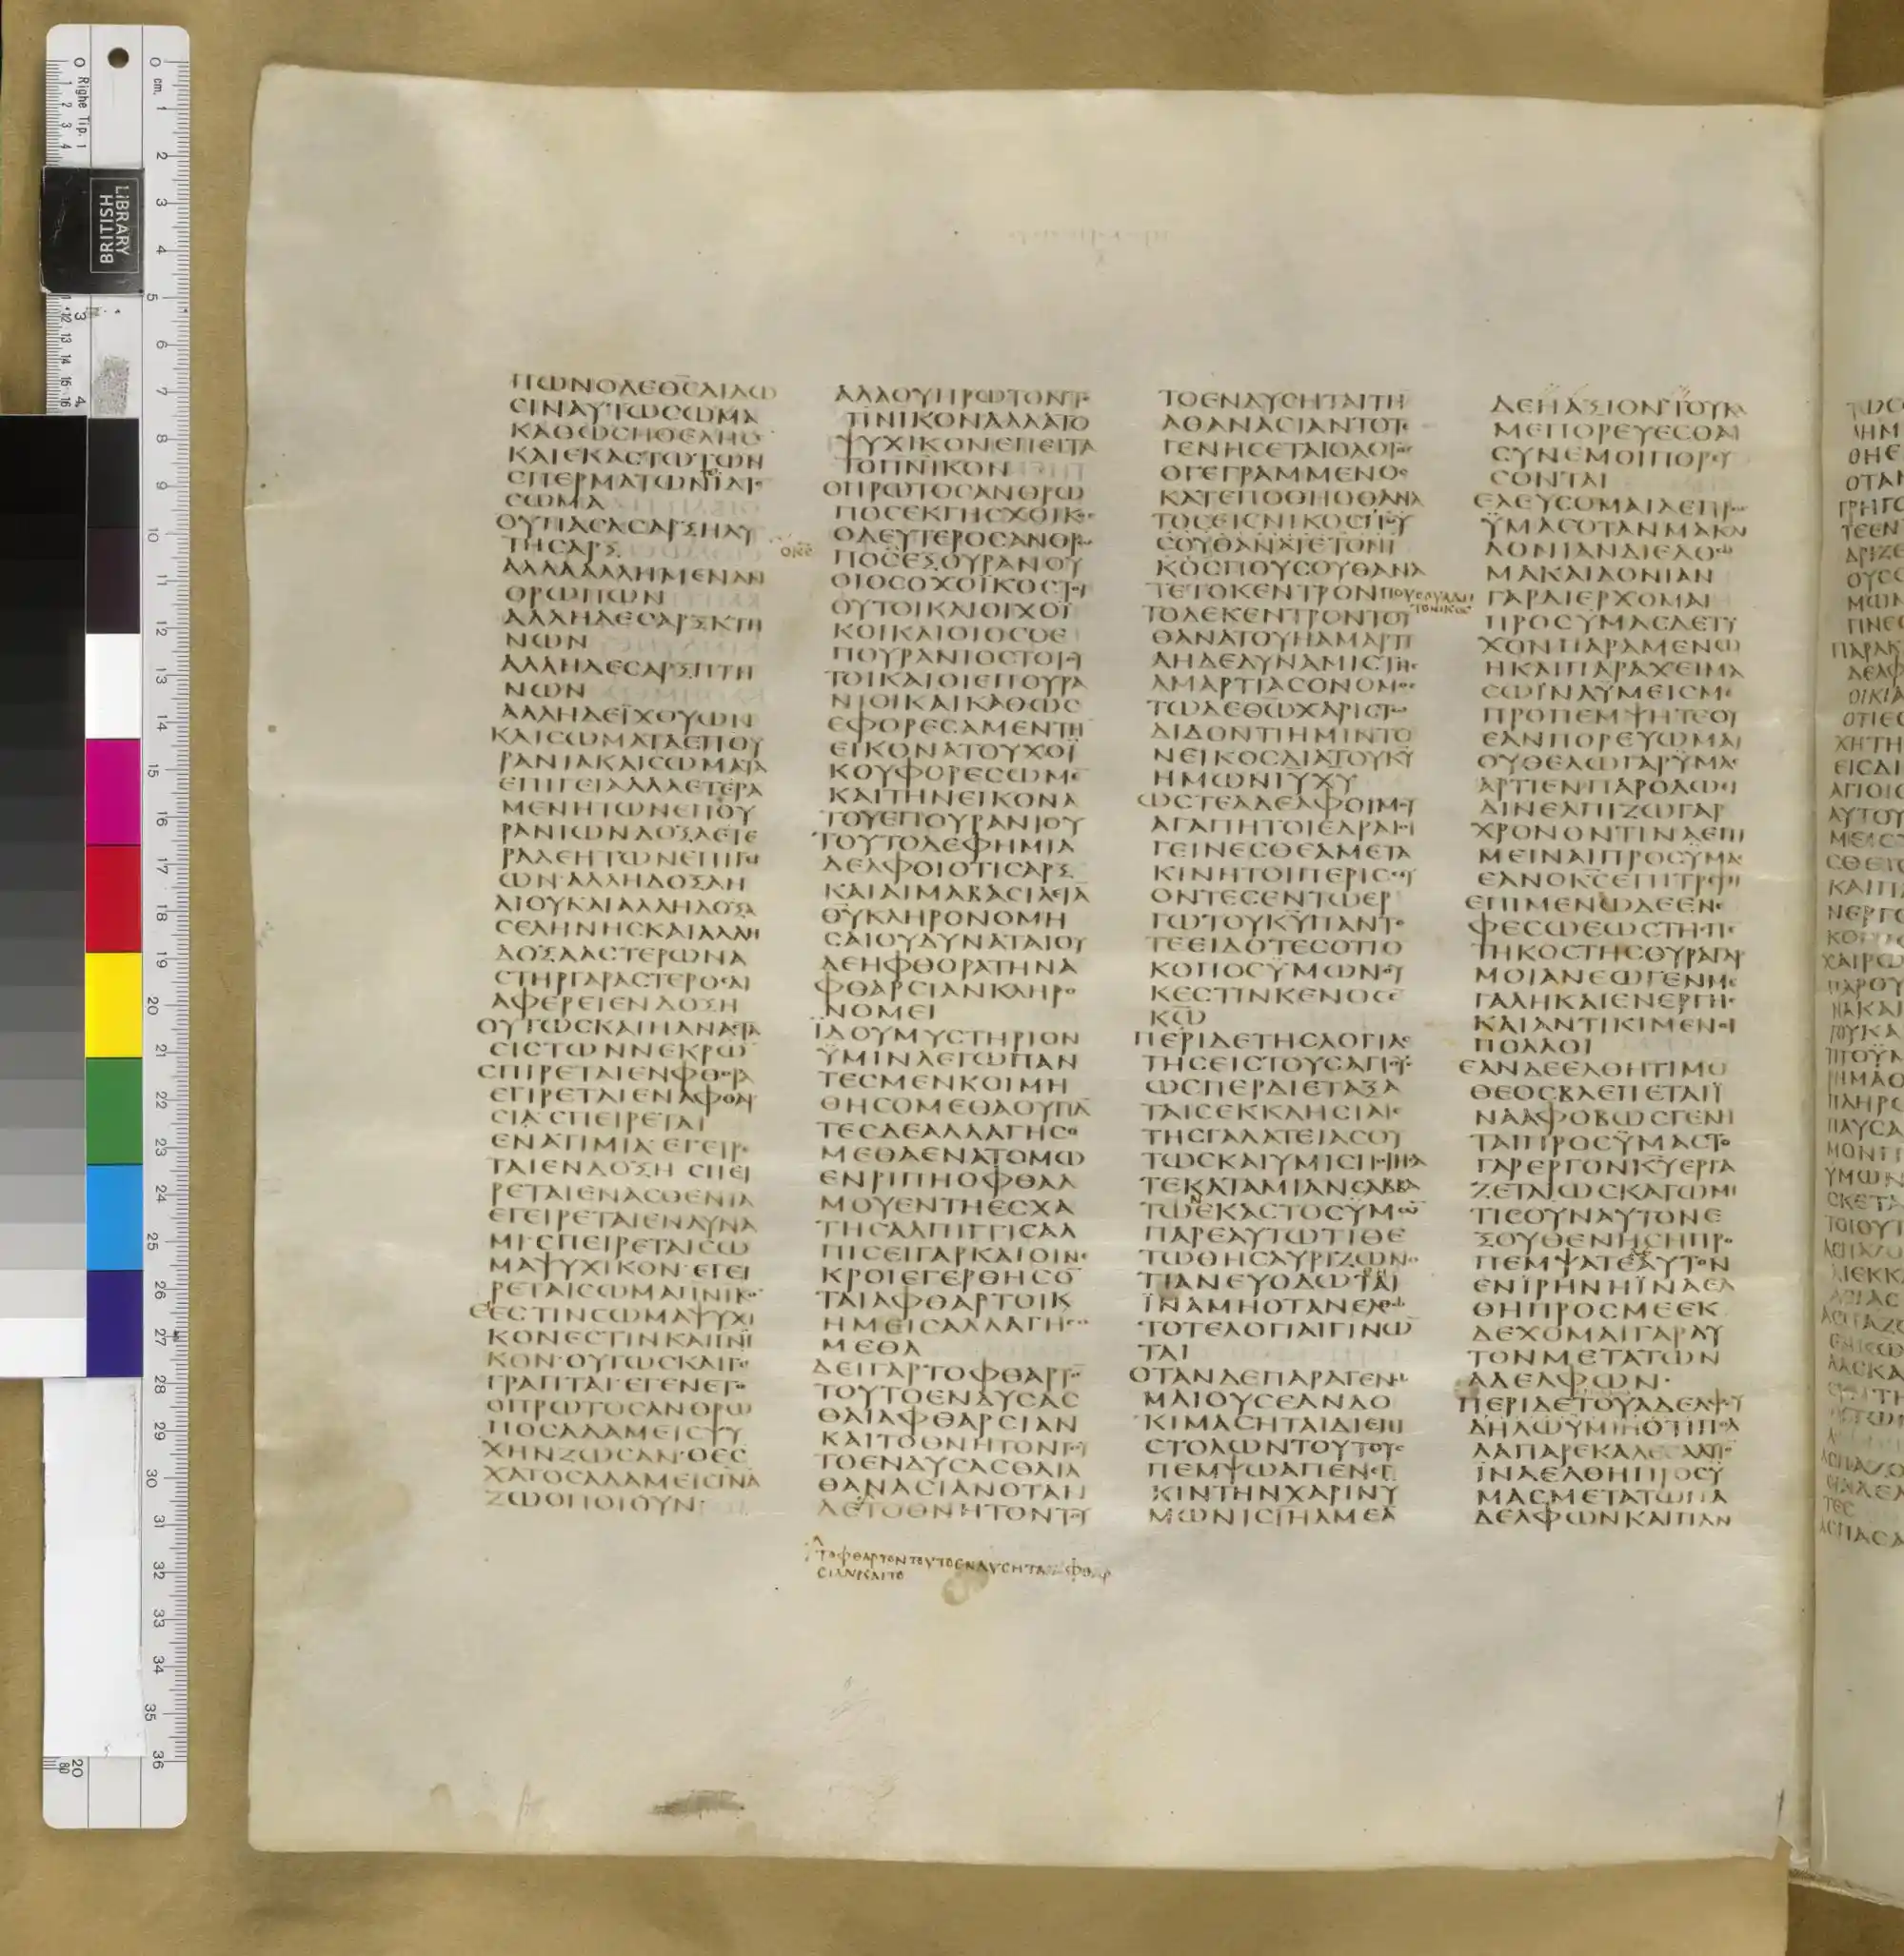 ΠΩΝΟΔΕΘΣΔΙΔΩ
ϹΙΝΑΥΤΩϹΩΜΑ
ΚΑΘΩϹΗΘΕΛΗϹΕ
ΚΑΙΕΚΑϹΤΩΤΩΝ
ϹΠΕΡΜΑΤΩΝΪΔΙΟ
ϹΩΜΑ
ΟΥΠΑϹΑϹΑΡΞΗΑΥ
ΤΗϹΑΡΞ
ΑΛΛΑΑΛΛΗΜΕΝΑΝ
ΘΡΩΠΩΝ
ΑΛΛΗΔΕϹΑΡΞΚΤΗ
ΝΩΝ
ΑΛΛΗΔΕϹΑΡΞΠΤΗ
ΝΩΝ
ΑΛΛΗΔΕΪΧΘΥΩΝ
ΚΑΙϹΩΜΑΤΑΕΠΟΥ
ΡΑΝΙΑΚΑΙϹΩΜΑΤΑ
ΕΠΙΓΕΙΑΛΛΑΕΤΕΡΑ
ΜΕΝΗΤΩΝΕΠΟΥ
ΡΑΝΙΩΝΔΟΞΑΕΤΕ
ΡΑΔΕΗΤΩΝΕΠΙΓΙ
ΩΝ·ΑΛΛΗΔΟΞΑΗ
ΛΙΟΥΚΑΙΑΛΛΗΔΟΞΑ
ϹΕΛΗΝΗϹΚΑΙΑΛΛΗ
ΔΟΞΑΑϹΤΕΡΩΝΑ
ϹΤΗΡΓΑΡΑϹΤΕΡΟϹΔΙ
ΑΦΕΡΕΙΕΝΔΟΞΗ
ΟΥΤΩϹΚΑΙΗΑΝΑϹΤΑ
ϹΙϹΤΩΝΝΕΚΡΩ
ϹΠΙΡΕΤΑΙΕΝΦΘΟΡΑ
ΕΓΙΡΕΤΑΙΕΝΑΦΘΑΡ
ϹΙΑϹΠΕΙΡΕΤΑΙ
ΕΝΑΤΙΜΙΑ·ΕΓΕΙΡΕ
ΤΑΙΕΝΔΟΞΗϹΠΕΙ
ΡΕΤΑΙΕΝΑϹΘΕΝΙΑ
ΕΓΕΙΡΕΤΑΙΕΝΔΥΝΑ
ΜΙ·ϹΠΕΙΡΕΤΑΙϹΩ
ΜΑΨΥΧΙΚΟΝ·ΕΓΕΙ
ΡΕΤΑΙϹΩΜΑΠΝΙΚΟ
ΕΙΕϹΤΙΝϹΩΜΑΨΥΧΙ
ΚΟΝΕϹΤΙΝΚΑΙΠΝΙ
ΚΟΝ·ΟΥΤΩϹΚΑΙΓΕ
ΓΡΑΠΤΑΙ·ΕΓΕΝΕΤΟ
ΟΠΡΩΤΟϹΑΝΘΡΩ
ΠΟϹΑΔΑΜΕΙϹΨΥ
ΧΗΝΖΩϹΑΝ·ΟΕϹ
ΧΑΤΟϹΑΔΑΜΕΙϹΠΝΑ
ΖΩΟΠΟΙΟΥΝ·
ΑΛΛΟΥΠΡΩΤΟΝΤΟ
ΠΝΙΚΟΝΑΛΛΑΤΟ
ΨΥΧΙΚΟΝΕΠΕΙΤΑ
ΤΟΠΝΙΚΟΝ
ΟΠΡΩΤΟϹΑΝΘΡΩ
ΠΟϹΕΚΓΗϹΧΟΙΚΟϹ
ΟΔΕΥΤΕΡΟϹΑΝΘΡΩ
ΠΟϹΕΞΟΥΡΑΝΟΥ
ΟΙΟϹΟΧΟΪΚΟϹΤΟΙ
ΟΥΤΟΙΚΑΙΟΙΧΟΪ
ΚΟΙΚΑΙΟΙΟϹΟΕ
ΠΟΥΡΑΝΙΟϹΤΟΙΟΥ
ΤΟΙΚΑΙΟΙΕΠΟΥΡΑ
ΝΙΟΙΚΑΙΚΑΘΩϹ
ΕΦΟΡΕϹΑΜΕΝΤΗ
ΕΙΚΟΝΑΤΟΥΧΟΪ
ΚΟΥΦΟΡΕϹΩΜΕ
ΚΑΙΤΗΝΕΙΚΟΝΑ
ΤΟΥΕΠΟΥΡΑΝΙΟΥ
ΤΟΥΤΟΔΕΦΗΜΙΑ
ΔΕΛΦΟΙΟΤΙϹΑΡΞ
ΚΑΙΑΙΜΑΒΑϹΙΛΕΙΑ
ΘΥΚΛΗΡΟΝΟΜΗ
ϹΑΙΟΥΔΥΝΑΤΑΙΟΥ
ΔΕΗΦΘΟΡΑΤΗΝΑ
ΦΘΑΡϹΙΑΝΚΛΗΡΟ
ΝΟΜΕΙ
ΪΔΟΥΜΥϹΤΗΡΙΟΝ
ΫΜΙΝΛΕΓΩΠΑΝ
ΤΕϹΜΕΝΚΟΙΜΗ
ΘΗϹΟΜΕΘΑΟΥΠΑ
ΤΕϹΔΕΑΛΛΑΓΗϹΟ
ΜΕΘΑΕΝΑΤΟΜΩ
ΕΝΡΙΠΗΟΦΘΑΛ
ΜΟΥΕΝΤΗΕϹΧΑ
ΤΗϹΑΛΠΙΓΓΙϹΑΛ
ΠΙϹΕΙΓΑΡΚΑΙΟΙΝΕ
ΚΡΟΙΕΓΕΡΘΗϹΟ
ΤΑΙΑΦΘΑΡΤΟΙΚ
ΗΜΕΙϹΑΛΛΑΓΗϹΟ
ΜΕΘΑ
ΔΕΙΓΑΡΤΟΦΘΑΡΤΟ
ΤΟΥΤΟΕΝΔΥϹΑϹ
ΘΑΙΑΦΘΑΡϹΙΑΝ
ΚΑΙΤΟΘΝΗΤΟΝΤΟΥ
ΤΟΕΝΔΥϹΑϹΘΑΙΑ
ΘΑΝΑϹΙΑΝΟΤΑΝ
ΔΕΤΟΘΝΗΤΟΝΤΟΥ
ΤΟΦΘΑΡΤΟΝΤΟΥΤΟΕΝΔΥϹΗΤΑΙΑΦΘΑΡ
ϹΙΑΝΚΑΙΤΟ
ΤΟΕΝΔΥϹΗΤΑΙΤΗ
ΑΘΑΝΑϹΙΑΝΤΟΤΕ
ΓΕΝΗϹΕΤΑΙΟΛΟΓΟϹ
ΟΓΕΓΡΑΜΜΕΝΟϹ
ΚΑΤΕΠΟΘΗΟΘΑΝΑ
ΤΟϹΕΙϹΝΙΚΟϹΠΟΥ
ϹΟΥΘΑΝΑΤΕΤΟΝΙ
ΚΟϹΠΟΥϹΟΥΘΑΝΑ
ΤΕΤΟΚΕΝΤΡΟΝ
ΤΟΔΕΚΕΝΤΡΟΝΤΟΥ
ΘΑΝΑΤΟΥΗΑΜΑΡΤΙ
ΑΗΔΕΔΥΝΑΜΙϹΤΗϹ
ΑΜΑΡΤΙΑϹΟΝΟΜΟϹ
ΤΩΔΕΘΩΧΑΡΙϹΤΩ
ΔΙΔΟΝΤΙΗΜΙΝΤΟ
ΝΕΙΚΟϹΔΙΑΤΟΥΚΥ
ΗΜΩΝΙΥΧΥ
ΩϹΤΕΑΔΕΛΦΟΙΜΟΥ
ΑΓΑΠΗΤΟΙΕΔΡΑΙΟΙ
ΓΕΙΝΕϹΘΕΑΜΕΤΑ
ΚΙΝΗΤΟΙΠΕΡΙϹϹΕΥ
ΟΝΤΕϹΕΝΤΩΕΡ
ΓΩΤΟΥΚΥΠΑΝΤΟ
ΤΕΕΙΔΟΤΕϹΟΤΙΟ
ΚΟΠΟϹΫΜΩΝΟΥ
ΚΕϹΤΙΝΚΕΝΟϹΕ
ΚΩ
ΠΕΡΙΔΕΤΗϹΛΟΓΙΑϹ
ΤΗϹΕΙϹΤΟΥϹΑΓΙΟΥϹ
ΩϹΠΕΡΔΙΕΤΑΞΑ
ΤΑΙϹΕΚΚΛΗϹΙΑΙϹ
ΤΗϹΓΑΛΑΤΕΙΑϹΟΥ
ΤΩϹΚΑΙΥΜΙϹΠΟΙΗϹΑ
ΤΕΚΑΤΑΜΙΑΝϹΑΒΒΑ
ΤΩΕΚΑϹΤΟϹΥΜΩ
ΠΑΡΕΑΥΤΩΤΙΘΕ
ΤΩΘΗϹΑΥΡΙΖΩΝΟ
ΤΙΑΝΕΥΟΔΩΤΑΙ
ΪΝΑΜΗΟΤΑΝΕΛΘΩ
ΤΟΤΕΛΟΓΙΑΙΓΙΝΩ
ΤΑΙ
ΟΤΑΝΔΕΠΑΡΑΓΕΝΩ
ΜΑΙΟΥϹΕΑΝΔΟ
ΚΙΜΑϹΗΤΑΙΔΙΕΠΙ
ϹΤΟΛΩΝΤΟΥΤΟΥϹ
ΠΕΜΨΩΑΠΕΝΕΓ
ΚΙΝΤΗΝΧΑΡΙΝΥ
ΜΩΝΙϹΙΗΛΜΕΑ
ΔΕΗΑΞΙΟΝΤΟΥΚΑ
ΜΕΠΟΡΕΥΕϹΘΑΙ
ϹΥΝΕΜΟΙΠΟΡΕΥ
ϹΟΝΤΑΙ
ΕΛΕΥϹΟΜΑΙΔΕΠΡΟϹ
ΫΜΑϹΟΤΑΝΜΑΚΑΙ
ΔΟΝΙΑΝΔΙΕΛΘΩ
ΜΑΚΑΙΔΟΝΙΑΝ
ΓΑΡΔΙΕΡΧΟΜΑΙ
ΠΡΟϹΫΜΑϹΔΕΤΥ
ΧΟΝΠΑΡΑΜΕΝΩ
ΗΚΑΙΠΑΡΑΧΕΙΜΑ
ϹΩΪΝΑΫΜΕΙϹΜΕ
ΠΡΟΠΕΜΨΗΤΕΟΥ
ΕΑΝΠΟΡΕΥΩΜΑΙ
ΟΥΘΕΛΩΓΑΡΫΜΑϹ
ΑΡΤΙΕΝΠΑΡΟΔΩΙ
ΔΙΝΕΛΠΙΖΩΓΑΡ
ΧΡΟΝΟΝΤΙΝΑΕΠΙ
ΜΕΙΝΑΙΠΡΟϹΫΜΑϹ
ΕΑΝΟΚϹΕΠΙΤΡΕΨΗ
ΕΠΙΜΕΝΩΔΕΕΝΕ
ΦΕϹΩΕΩϹΤΗϹΠΕ
ΤΗΚΟϹΤΗϹΘΥΡΑΓΑΡ
ΜΟΙΑΝΕΩΓΕΝΜΕ
ΓΑΛΗΚΑΙΕΝΕΡΓΗϹ
ΚΑΙΑΝΤΙΚΙΜΕΝΟΙ
ΠΟΛΛΟΙ
ΕΑΝΔΕΕΛΘΗΤΙΜΟ
ΘΕΟϹΒΛΕΠΕΤΑΙΪ
ΝΑΑΦΟΒΩϹΓΕΝΗ
ΤΑΙΠΡΟϹΫΜΑϹΤΟ
ΓΑΡΕΡΓΟΝΚΥΕΡΓΑ
ΖΕΤΑΙΩϹΚΑΓΩΜΗ
ΤΙϹΟΥΝΑΥΤΟΝΕ
ΞΟΥΘΕΝΗϹΗΠΡΟ
ΠΕΜΨΑΤΕΑΥΤΟΝ
ΕΝΪΡΗΝΗΪΝΑΕΛ
ΘΗΠΡΟϹΜΕΕΚ
ΔΕΧΟΜΑΙΓΑΡΑΥ
ΤΟΝΜΕΤΑΤΩΝ
ΑΔΕΛΦΩΝ·
ΠΕΡΙΔΕΤΟΥΑΔΕΛΦΟΥ
ΔΗΛΩΥΜΙΝΟΤΙΠΟΛ
ΛΑΠΑΡΕΚΑΛΕϹΑΑΥΤΟ
ΪΝΑΕΛΘΗΠΡΟϹΫ
ΜΑϹΜΕΤΑΤΩΝΑ
ΔΕΛΦΩΝΚΑΙΠΑΝ